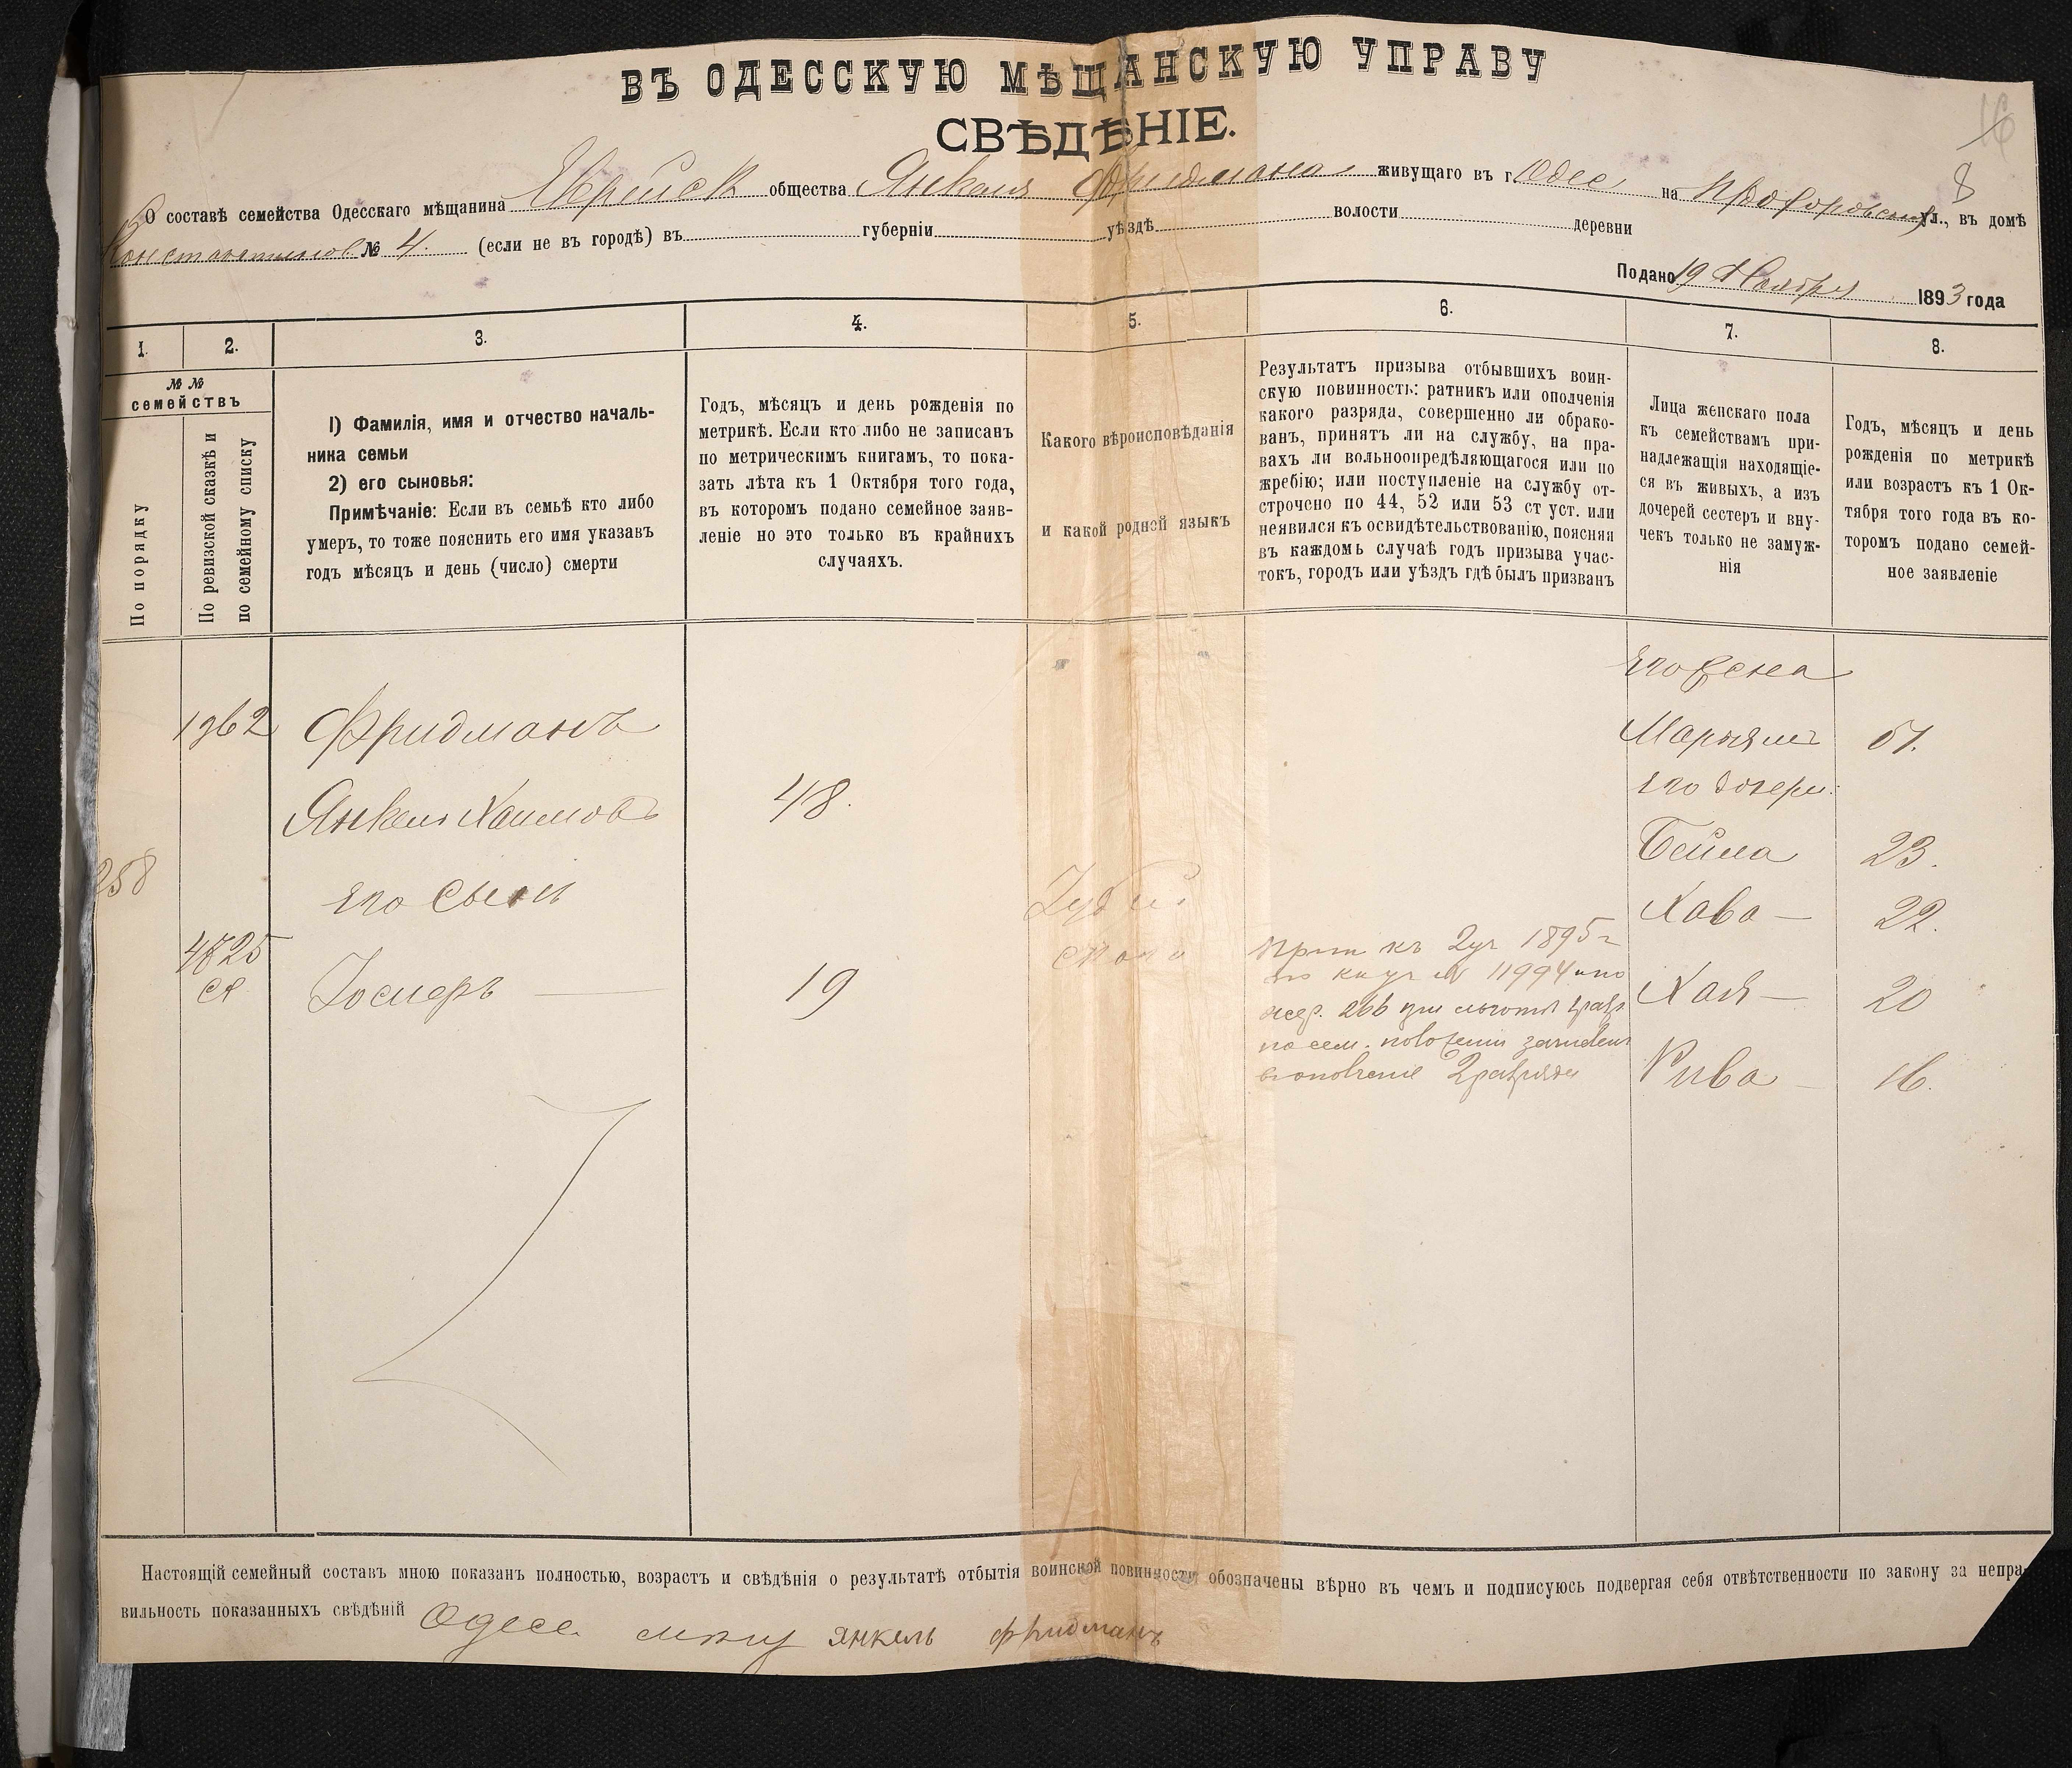 ВЪ ОДЕССКУЮ МѢЩАНСКУЮ УПРАВУ
СВѢДѢНІЕ.
16
8
О составѣ семейства Одесскаго мѣщанина Еврейск общества Янкеля Фридмана живущаго въ г. Одес на Прохоровской ул., въ домѣ
Константинов № 4. (если не въ городѣ) въ губерніи уѣздѣ волости деревни
Подано 19 Ноября 1893 года
1. 2. 3. 4. 5. 6. 7. 8.
№ №
семействъ
По порядку
По ревизской сказкѣ и
по семейному списку
1) Фамилія, имя и отчество началь-
ника семьи
2) его сыновья:
Примѣчаніе: Если въ семьѣ кто либо
умеръ, то тоже пояснить его имя указавъ
годъ мѣсяцъ и день (число) смерти
Годъ, мѣсяцъ и день рожденія по
метрикѣ. Если кто либо не записанъ
по метрическимъ книгамъ, то пока-
зать лѣта къ 1 Октября того года,
въ которомъ подано семейное заяв-
леніе но это только въ крайнихъ
случаяхъ.
Какого вѣроисповѣданія
и какой родней языкъ
Результатъ призыва отбывшихъ воин-
скую повинность: ратникъ или ополченія
какого разряда, совершенно ли обрако-
ванъ, принятъ ли на службу, на пра-
вахъ ли вольноопредѣляющагося или по
жребію; или поступленіе на службу от-
строчено по 44, 52 или 53 ст уст. или
неявился къ освидѣтельствованію, поясняя
въ каждомъ случаѣ годъ призыва учас-
токъ, городъ или уѣздъ гдѣ былъ призванъ
Лица женскаго пола
къ семействамъ при-
надлежащія находящіе-
ся въ живыхъ, а изъ
дочерей сестеръ и вну-
чекъ только не замуж-
нія
Годъ, мѣсяцъ и день
рожденія по метрикѣ
или возрастъ къ 1 Ок-
тября того года въ ко-
торомъ подано семей-
ное заявленіе
1362 Фридманъ
Янкель Хаимовъ 48.
258
его сынъ
4825
Иосиеръ — 19
Иудей
при къ 2 уч 1895 г
№ 11994 и по
жер. 266 при льготѣ 2 разр.
по сем. положенію зачисленъ
въ ополченіе 2 разряда
его жена
Марьямъ 51.
его дочери:
Бейла 23.
Хава — 22.
Хая — 20
Рива — 16.
Настоящій семейный составъ мною показанъ полностью, возрастъ и свѣдѣнія о результатѣ отбытія воинской повинности обозначены вѣрно въ чемъ и подписуюсь подвергая себя отвѣтственности по закону за непра-
вильность показанныхъ свѣдѣній Одесс янкель фридманъ